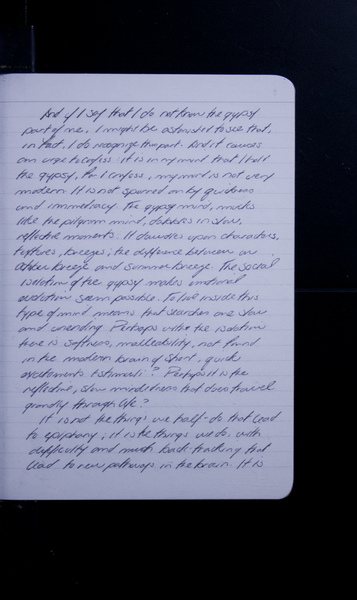 And if I say that I do not know the gypsy
part of me, I might be astonished to see that,
in fact, I do recognize this part. And it causes
an urge to confess: it is in my mind that I hold
the gypsy, for I confess, my mind is not very
modern. It is not spurred on by quickness
and immediacy. The gypsy mind, much
like the pilgrim mind, in slow,
reflective moments. It upon characters,
textures, breezes; the difference between an
October breeze and summer breeze. The social
isolation of the gypsy makes emotional
evolution seem possible. To live inside this
type of mind means that searches are slow
and unending. Perhaps with the isolation
there is softness, malleability, not found
in the modern brain of short, quick
excitements & stimuli? Perhaps it is the
reflective, slow mindedness that does travel
grandly through life?
It is not the things we half-do that lead
to epiphany; it is the things we do, with
difficulty and much back-tracking that
lead to new pathways in the brain. It is